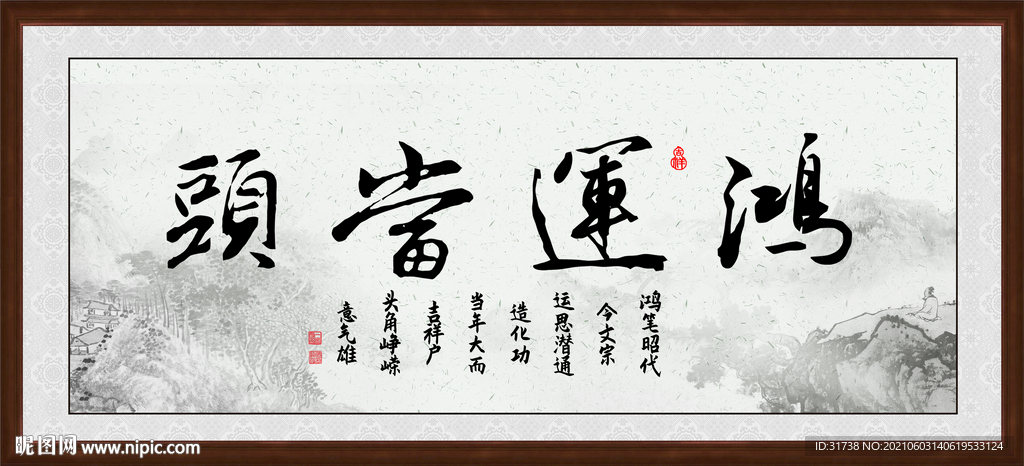 鴻運當頭
吉祥
鸿笔昭代
今文宗
运思潜通
造化功
当年大而
吉祥户
头角峥嵘
意气雄
昵图网 www.nipic.com
ID:31738 NO:20210603140619533124